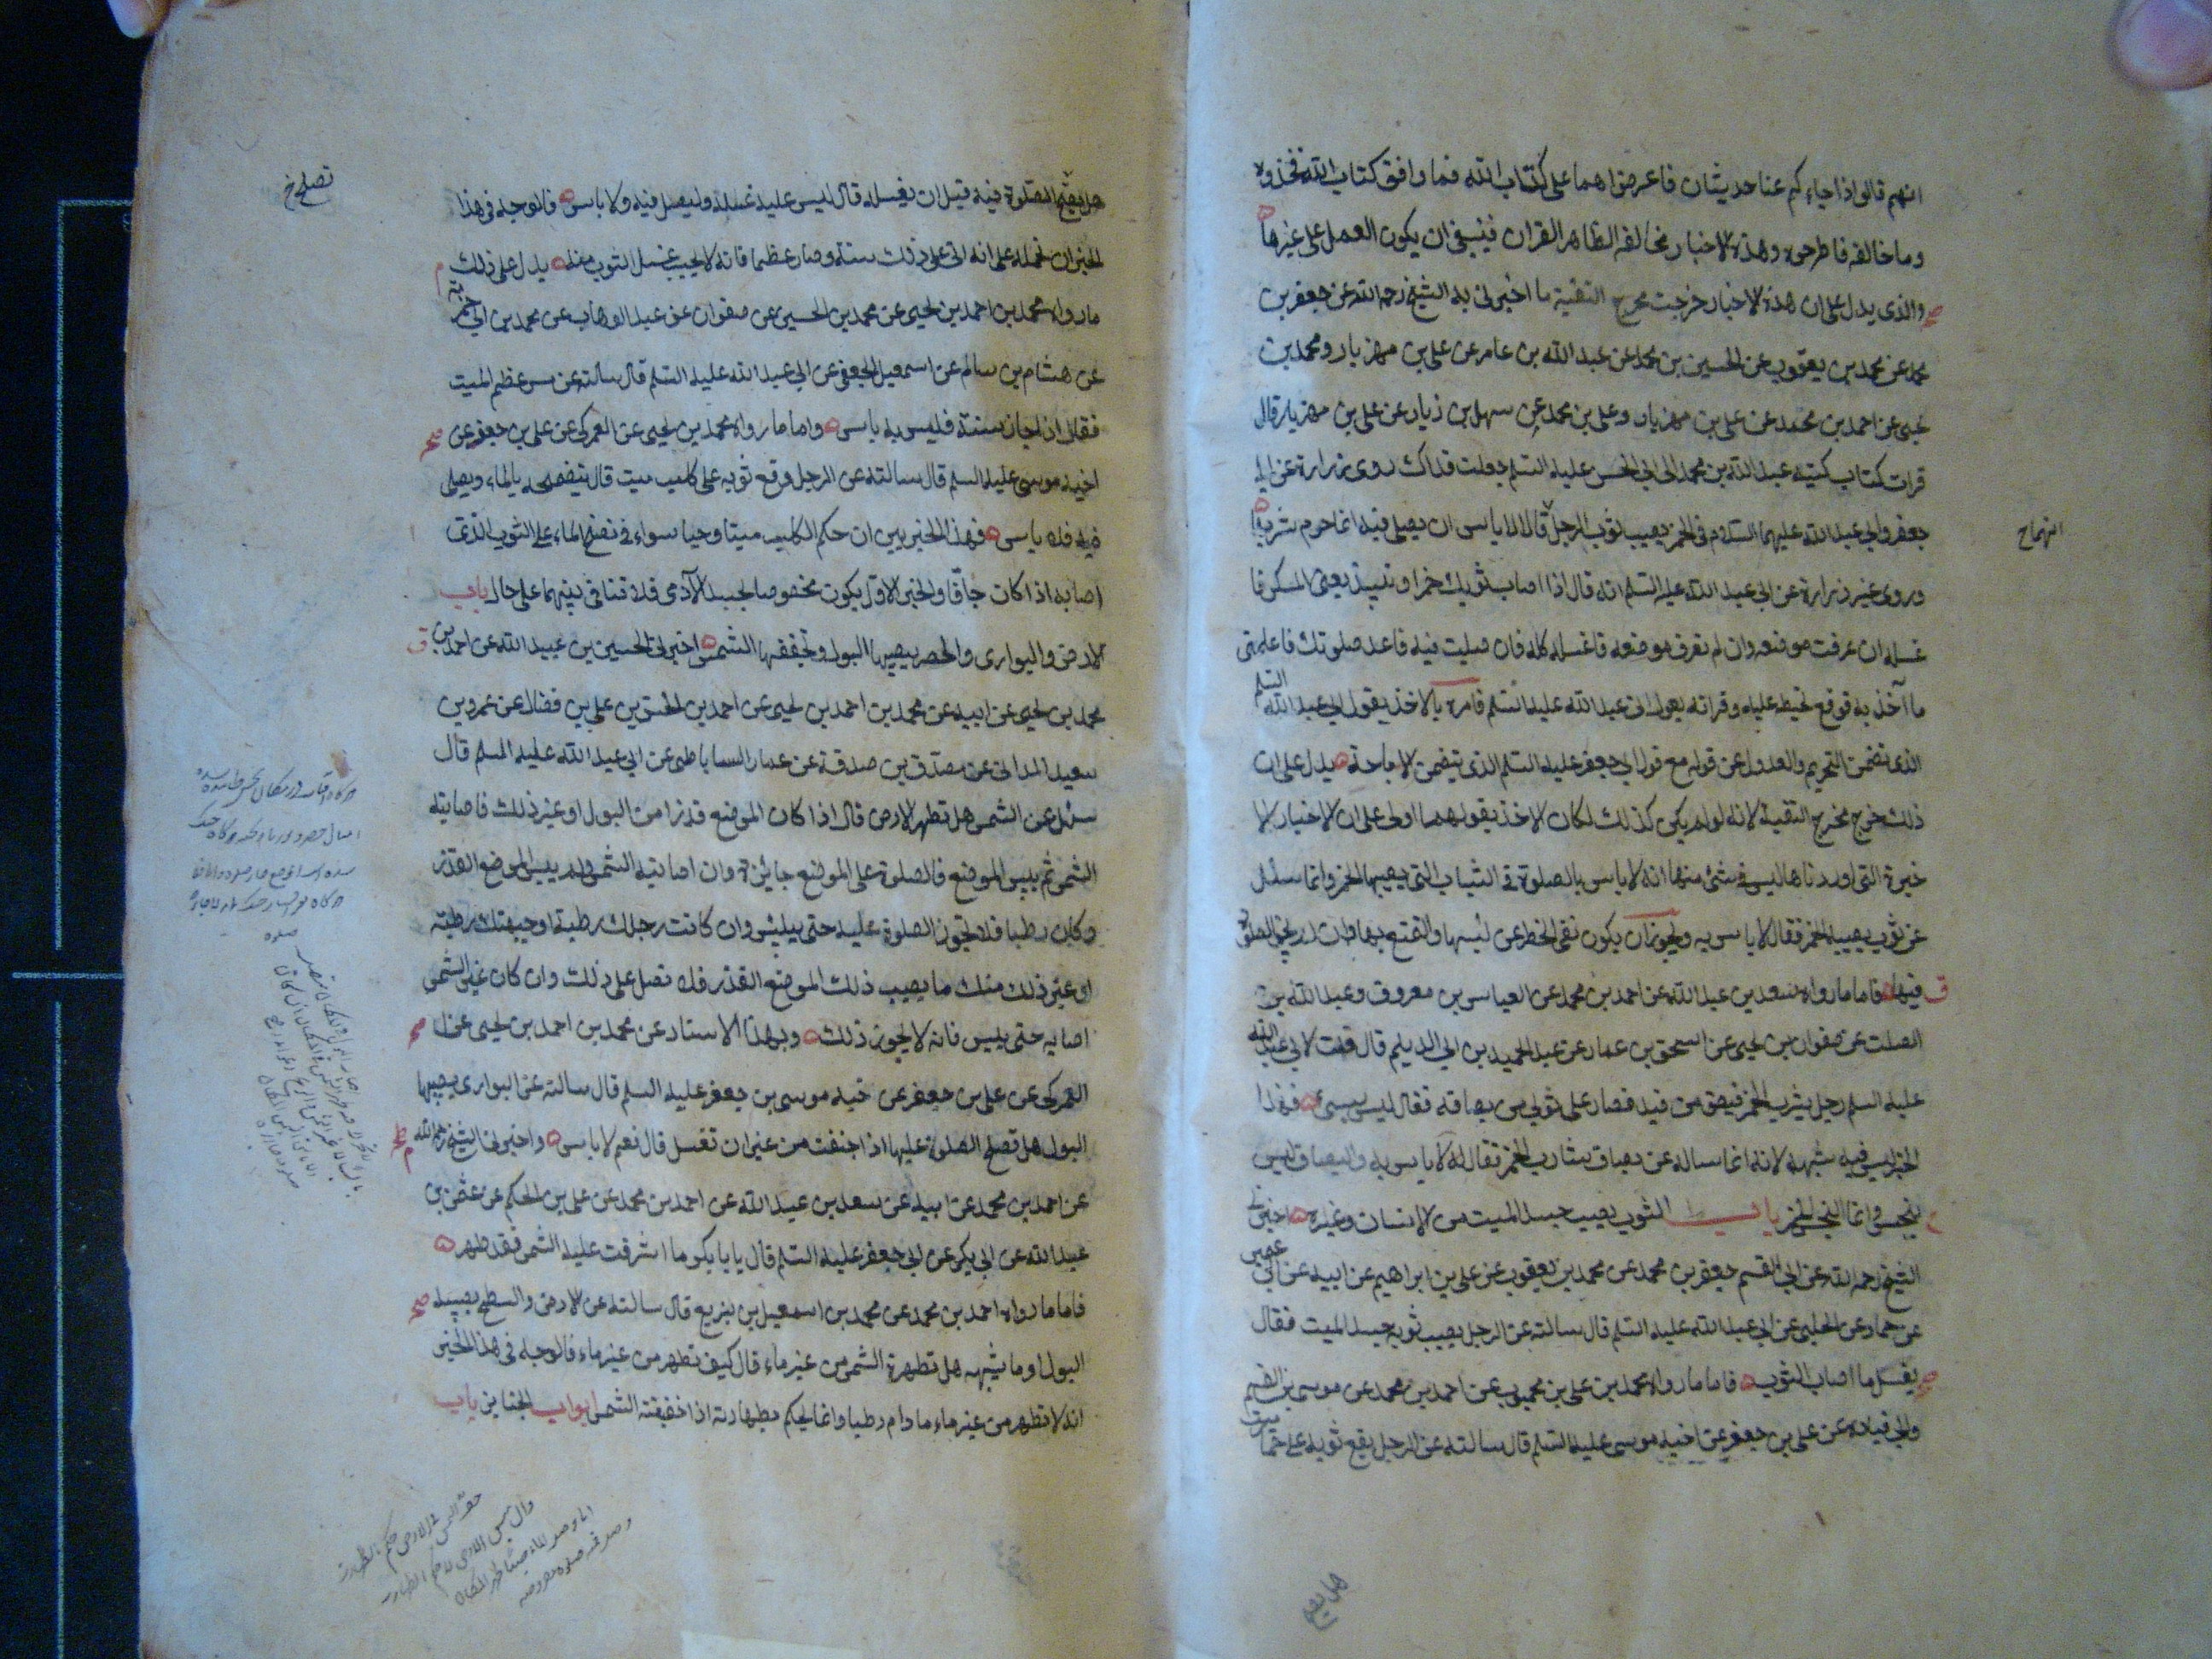 انهم قالوا اذا جاءكم عنا حديثان فاعرضوا هما على كتاب الله فما وافق كتاب الله فخذوه
وما خالفه فاطرحوه وهذه الاخبار مخالفه الظاهر القران فينبغي ان يكون العمل على غيرها
والذي يدل على ان هذه الاخبار خرجت مخرج التقية ما اخبرني به الشيخ رحمه الله عن جعفر بن
محمد عن محمد بن يعقوب عن الحسين بن محمد عن عبد الله بن عامر عن علي بن مهزيار ومحمد بن
يحيى عن احمد بن محمد عن علي بن مهزيار وعلي بن محمد عن سهل بن زياد عن علي بن مهزيار قال
قرات كتاب كتبه عبد الله بن محمد الى ابي الحسن عليه السلم جعلت فداك روى زرارة عن ابي
جعفر وابي عبد الله عليهما السلام في الخمر يصيب ثوب الرجل قالا لا باس ان يصلي فيه انما حرم شربها
انهما خ
وروى غير زرارة عن ابي عبد الله عليه السلم انه قال اذا اصاب ثوبك خمر او نبيذ يعني المسكر فا
غسله ان عرفت موضعه وان لم تعرف موضعه فاغسله كله فان صليت فيه فاعد صلوتك فاعلمني
ما آخذ به فوقع بخطه عليه وقراته بقول ابي عبد الله عليه السلم فامره بالاخذ بقول ابي عبد الله السلم
الذي تضمن التحريم والعدول عن قوله مع قول ابي جعفر عليه السلم الذي يتضمن الاباحة يدل على ان
ذلك خرج مخرج التقية لانه لو لم يكن كذلك لكان الاخذ بقولهما اولى على ان الاخبار الا
خيرة التي اوردناها ليس في شئ منها انه لا باس بالصلوة في الثياب التي يصيبها الخمر وانما سئل
عن ثوب يصيبه الخمر فقال لا باس به ويجوز ان يكون نفى الحظر عن لبسها والتمتع بها وان لم يجز الصلوة
فيها فاما ما رواه سعد بن عبد الله عن احمد بن محمد عن العباس بن معروف وعبد الله بن
الصلت عن صفوان بن يحيى عن اسحق بن عمار عن عبد الحميد بن ابي الديلم قال قلت لابي عبد الله
عليه السلم رجل يشرب الخمر فيبصق من فيه فصار على ثوبي من بصاقه فقال ليس بشئ فهذا
الخبر ليس فيه شبهه لانه انما ساله عن بصاق شارب الخمر فقال له لا باس به والبصاق ليس
بنجس وانما النجس الخمر باب الثوب يصيب جسد الميت من الانسان وغيره اخبرني
الشيخ رحمه الله عن ابي القسم جعفر بن محمد عن محمد بن يعقوب عن علي بن ابراهيم عن ابيه عن ابن ابي عمير
عن حماد عن الحلبي عن ابي عبد الله عليه السلم قال سالته عن الرجل يصيب ثوبه جسد الميت فقال
يغسل ما اصاب الثوب فاما ما رواه محمد بن علي بن محبوب عن احمد بن محمد عن موسى بن القسم
وابي قتادة عن علي بن جعفر عن اخيه موسى عليه السلم قال سالته عن الرجل يقع ثوبه على حمار ميت
هل يصح
هل يصح الصلوة فيه قبل ان يغسله قال ليس عليه غسله وليصل فيه ولا باس فالوجه في هذا
تصلح خ
الخبر ان نحمله على انه اتى على ذلك سنة وصار عظما فانه لا يجب غسل الثوب منه يدل على ذلك
ما رواه محمد بن احمد بن يحيى عن محمد بن الحسين عن صفوان عن عبد الوهاب عن محمد بن ابي حمزة
عن هشام بن سالم عن اسمعيل الجعفي عن ابي عبد الله عليه السلم قال سالته عن مس عظم الميت
فقال اذا جاز سنة فليس به باس واما ما رواه محمد بن يحيى عن العمركي عن علي بن جعفر عن
اخيه موسى عليه السلم قال سالته عن الرجل وقع ثوبه على كلب ميت قال ينضحه بالماء ويصلي
فيه فلا باس فهذا الخبر يبين ان حكم الكلب ميتا وحيا سواء في نضح الماء على الثوب الذي
اصابه اذا كان جافا والخبر الاول يكون مخصوصا بجسد الآدمي فلا تنافي بينهما على حال باب
الارض والبواري والحصر يصيبها البول وتجففها الشمس اخبرني الحسين بن عبيد الله عن احمد بن
محمد بن يحيى عن ابيه عن محمد بن احمد بن يحيى عن احمد بن الحسن بن علي بن فضال عن عمرو بن
سعيد المدائني عن مصدق بن صدقة عن عمار الساباطي عن ابي عبد الله عليه السلم قال
سئل عن الشمس هل تطهر الارض قال اذا كان الموضع قذرا من البول او غير ذلك فاصابته
الشمس ثم يبس الموضع فالصلوة على الموضع جائزة وان اصابته الشمس ولم ييبس الموضع القذر
وكان رطبا فلا تجوز الصلوة عليه حتى ييبس وان كانت رجلك رطبة او جبهتك رطبة
او غير ذلك منك ما يصيب ذلك الموضع القذر فلا تصل على ذلك وان كان غير الشمس
اصابه حتى يبس فانه لا يجوز ذلك وبهذا الاسناد عن محمد بن احمد بن يحيى عن
العمركي عن علي بن جعفر عن اخيه موسى بن جعفر عليه السلم قال سالته عن البواري يصيبها
البول هل تصلح الصلوة عليها اذا جففت من غير ان تغسل قال نعم لا باس واخبرني الشيخ رحمه الله
عن احمد بن محمد عن ابيه عن سعد بن عبد الله عن احمد بن محمد عن علي بن الحكم عن عثمن بن
عبد الله عن ابي بكر عن ابي جعفر عليه السلم قال يا بابكر ما اشرقت عليه الشمس فقد طهر
فاما ما رواه احمد بن محمد عن محمد بن اسمعيل بن بزيع قال سالته عن الارض والسطح يصيبه
البول او ما يشبهه هل تطهره الشمس من غير ماء قال كيف تطهر من غير ماء فالوجه في هذا الخبر
انه لا تطهر من غير ماء ما دام رطبا وانما يحكم بطهارته اذا جففته الشمس ابواب الجنائز باب